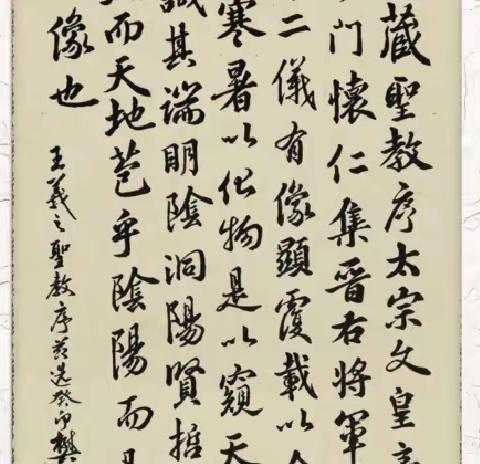 藏聖教序太宗文皇帝
門懷仁集晉右將軍
二儀有像顯覆載以含
寒暑以化物是以窺天
識其端明陰洞陽賢哲
而天地苞乎陰陽而易
像也
王羲之聖教序节选癸卯樊